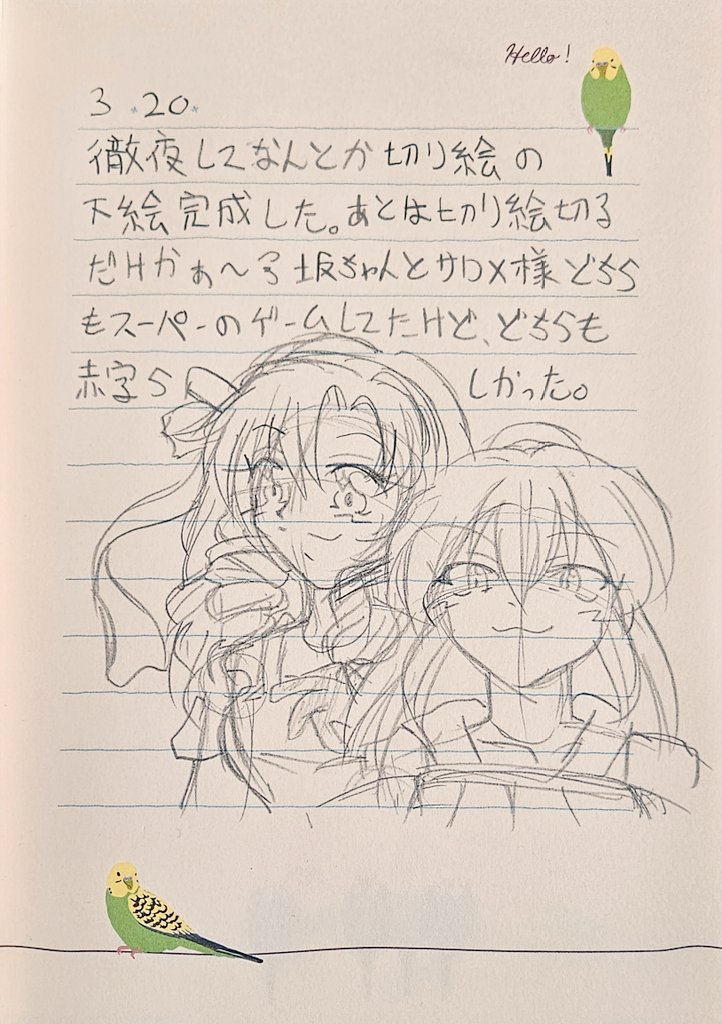 Hello!
3.20.
徹夜してなんとか切り絵の
下絵完成した。あとは切り絵切る
だけかぁ〜 坂ちゃんとサロメ様どちら
もスーパーのゲームしてたけど、どちらも
赤字らしかった。